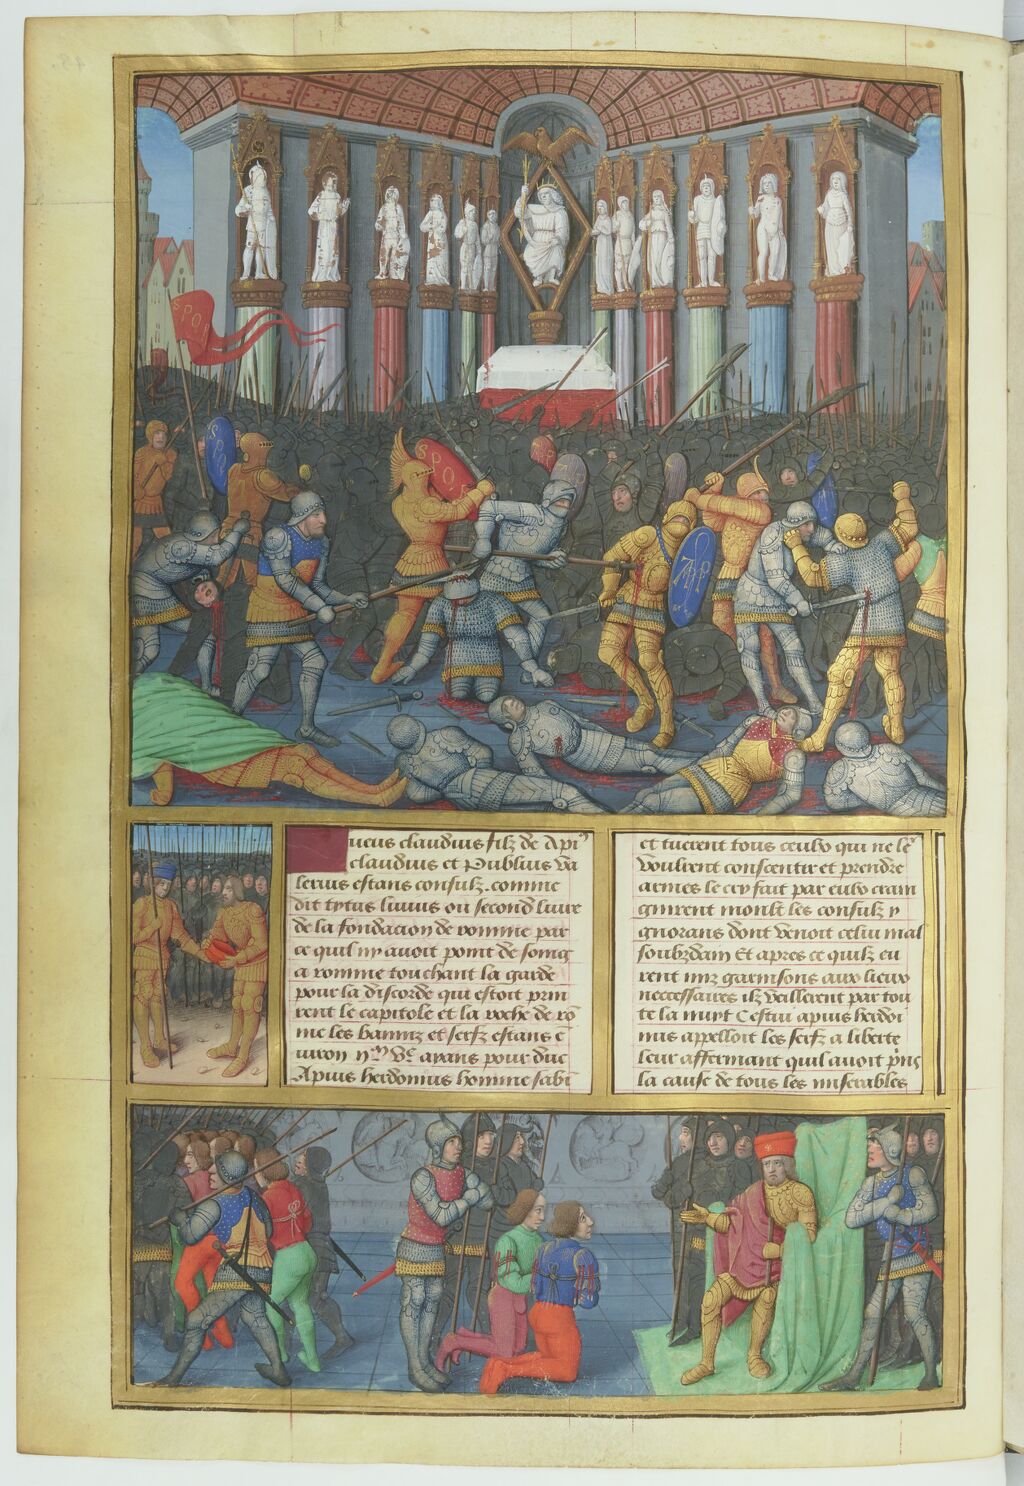 SPQR
SPQ
SPQ
ucius claudius filz de Api9
claudius et Publius va
lerius estans consulz. comme
dit tytus livius ou second livre
de la fondacion de romme par
ce quil ny avoit point de soing
a romme touchant la garde
pour la discorde qui estoit prin
rent le capitole et la roche de ro
me les banniz et serfz estans e
uiron avans pour duc
Apius herdonius homme sabi
et tuerent tous ceulx qui ne se
vouloient consentir et prendre
armes le cry fait par eulx crain
gnirent moult les consulz y
gnorans dont venoit celui mal
soubzdain Et apres ce quilz eu
rent mis garnisons aux lieux
necessaires ilz veillerent par tou
te la nuyt Cestui apius herdo
nius appelloit les serfz a liberte
leur affermant quil avoit prins
la cause de tous les miserables